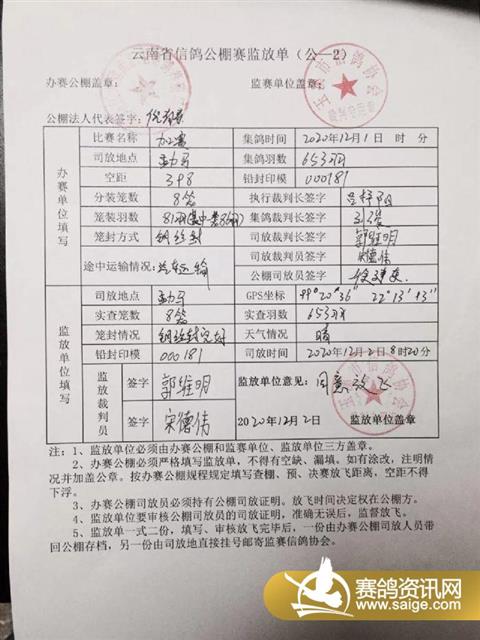 云南省信鸽公棚赛监放单（公—2）
办赛公棚盖章： 监赛单位盖章：
市信鸽协会
裁判专用章
公棚法人代表签字：
办赛单位填写
比赛名称 加赛 集鸽时间 2020年12月1日 时 分
司放地点 勐马 集鸽羽数 653羽
空距 348 铅封印模 000181
分装笼数 8笼 执行裁判长签字
笼装羽数 集鸽裁判长签字
笼封方式 钢丝封 司放裁判长签字 郭维明
途中运输情况： 汽车运输 司放裁判员签字 宋德伟
公棚司放员签字
监放单位填写
司放地点 勐马 GPS坐标 99°20′36″ 22°13′43″
实查笼数 8笼 实查羽数 653羽
笼封情况 钢丝封完好 天气情况 晴
铅封印模 000181 司放时间 2020年12月2日8时20分
监放裁判员
签字 郭维明 监放单位意见： 同意放飞
签字 宋德伟 2020年12月2日 监放单位盖章
注：1、监放单位必须由办赛公棚和监赛单位、监放单位三方盖章。
2、办赛公棚必须严格填写监放单，不得有空缺、漏填。如有涂改，注明情
况并加盖公章。按办赛公棚规程规定填写查棚、预、决赛放飞距离，空距不得
下浮。
3、办赛公棚司放员必须持有公棚司放证明。放飞时间决定权在公棚方。
4、监放单位要审核公棚司放员的司放证明，准确无误后，监督放飞。
5、监放单一式二份，填写、审核放飞完毕后，一份由办赛公棚司放人员带
回公棚存档，另一份由司放地直接挂号邮寄监赛信鸽协会。
赛鸽资讯网
www.saige.com